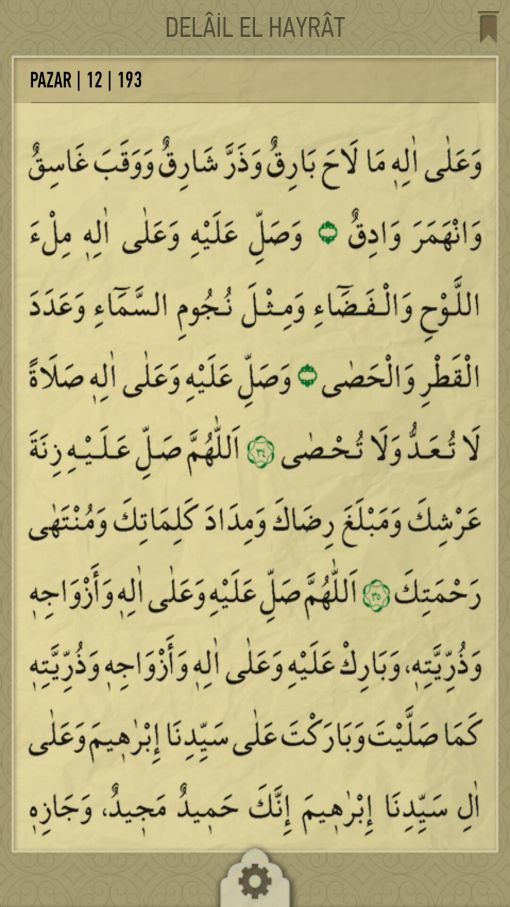 DELÂİL EL HAYRÂT
PAZAR | 12 | 193
وَعَلٰى اٰلِهٖ مَا لَاحَ بَارِقٌ وَذَرَّ شَارِقٌ وَوَقَبَ غَاسِقٌ
وَانْهَمَرَ وَادِقٌ ۝ وَصَلِّ عَلَيْهِ وَعَلٰى اٰلِهٖ مِلْءَ
اللَّوْحِ وَالْفَضَٓاءِ وَمِثْلَ نُجُومِ السَّمَٓاءِ وَعَدَدَ
الْقَطْرِ وَالْحَصٰى ۝ وَصَلِّ عَلَيْهِ وَعَلٰى اٰلِهٖ صَلَاةً
لَا تُعَدُّ وَلَا تُحْصٰى ٣٤ اَللّٰهُمَّ صَلِّ عَلَيْهِ زِنَةَ
عَرْشِكَ وَمَبْلَغَ رِضَاكَ وَمِدَادَ كَلِمَاتِكَ وَمُنْتَهٰى
رَحْمَتِكَ ٣٥ اَللّٰهُمَّ صَلِّ عَلَيْهِ وَعَلٰى اٰلِهٖ وَأَزْوَاجِهٖ
وَذُرِّيَّتِهٖ، وَبَارِكْ عَلَيْهِ وَعَلٰى اٰلِهٖ وَأَزْوَاجِهٖ وَذُرِّيَّتِهٖ
كَمَا صَلَّيْتَ وَبَارَكْتَ عَلٰى سَيِّدِنَا إِبْرٰهٖيمَ وَعَلٰى
اٰلِ سَيِّدِنَا إِبْرٰهٖيمَ إِنَّكَ حَمٖيدٌ مَجٖيدٌ، وَجَازِهٖ